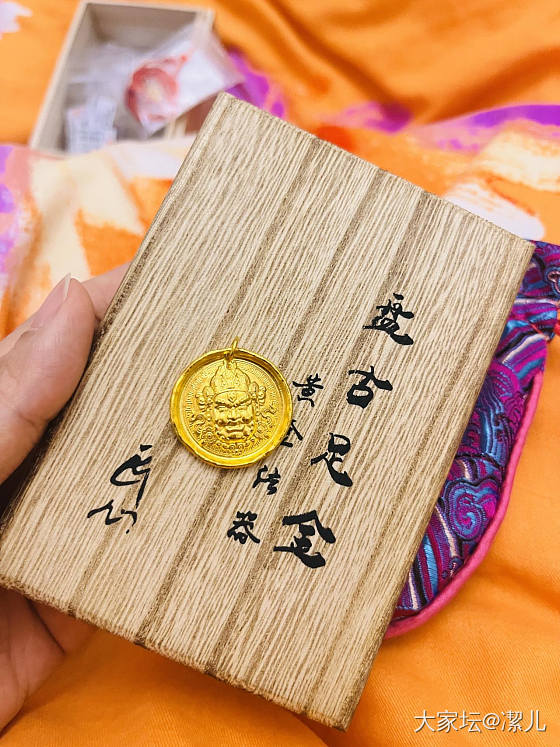 盘古足金
黄金法器
大家坛@潔儿